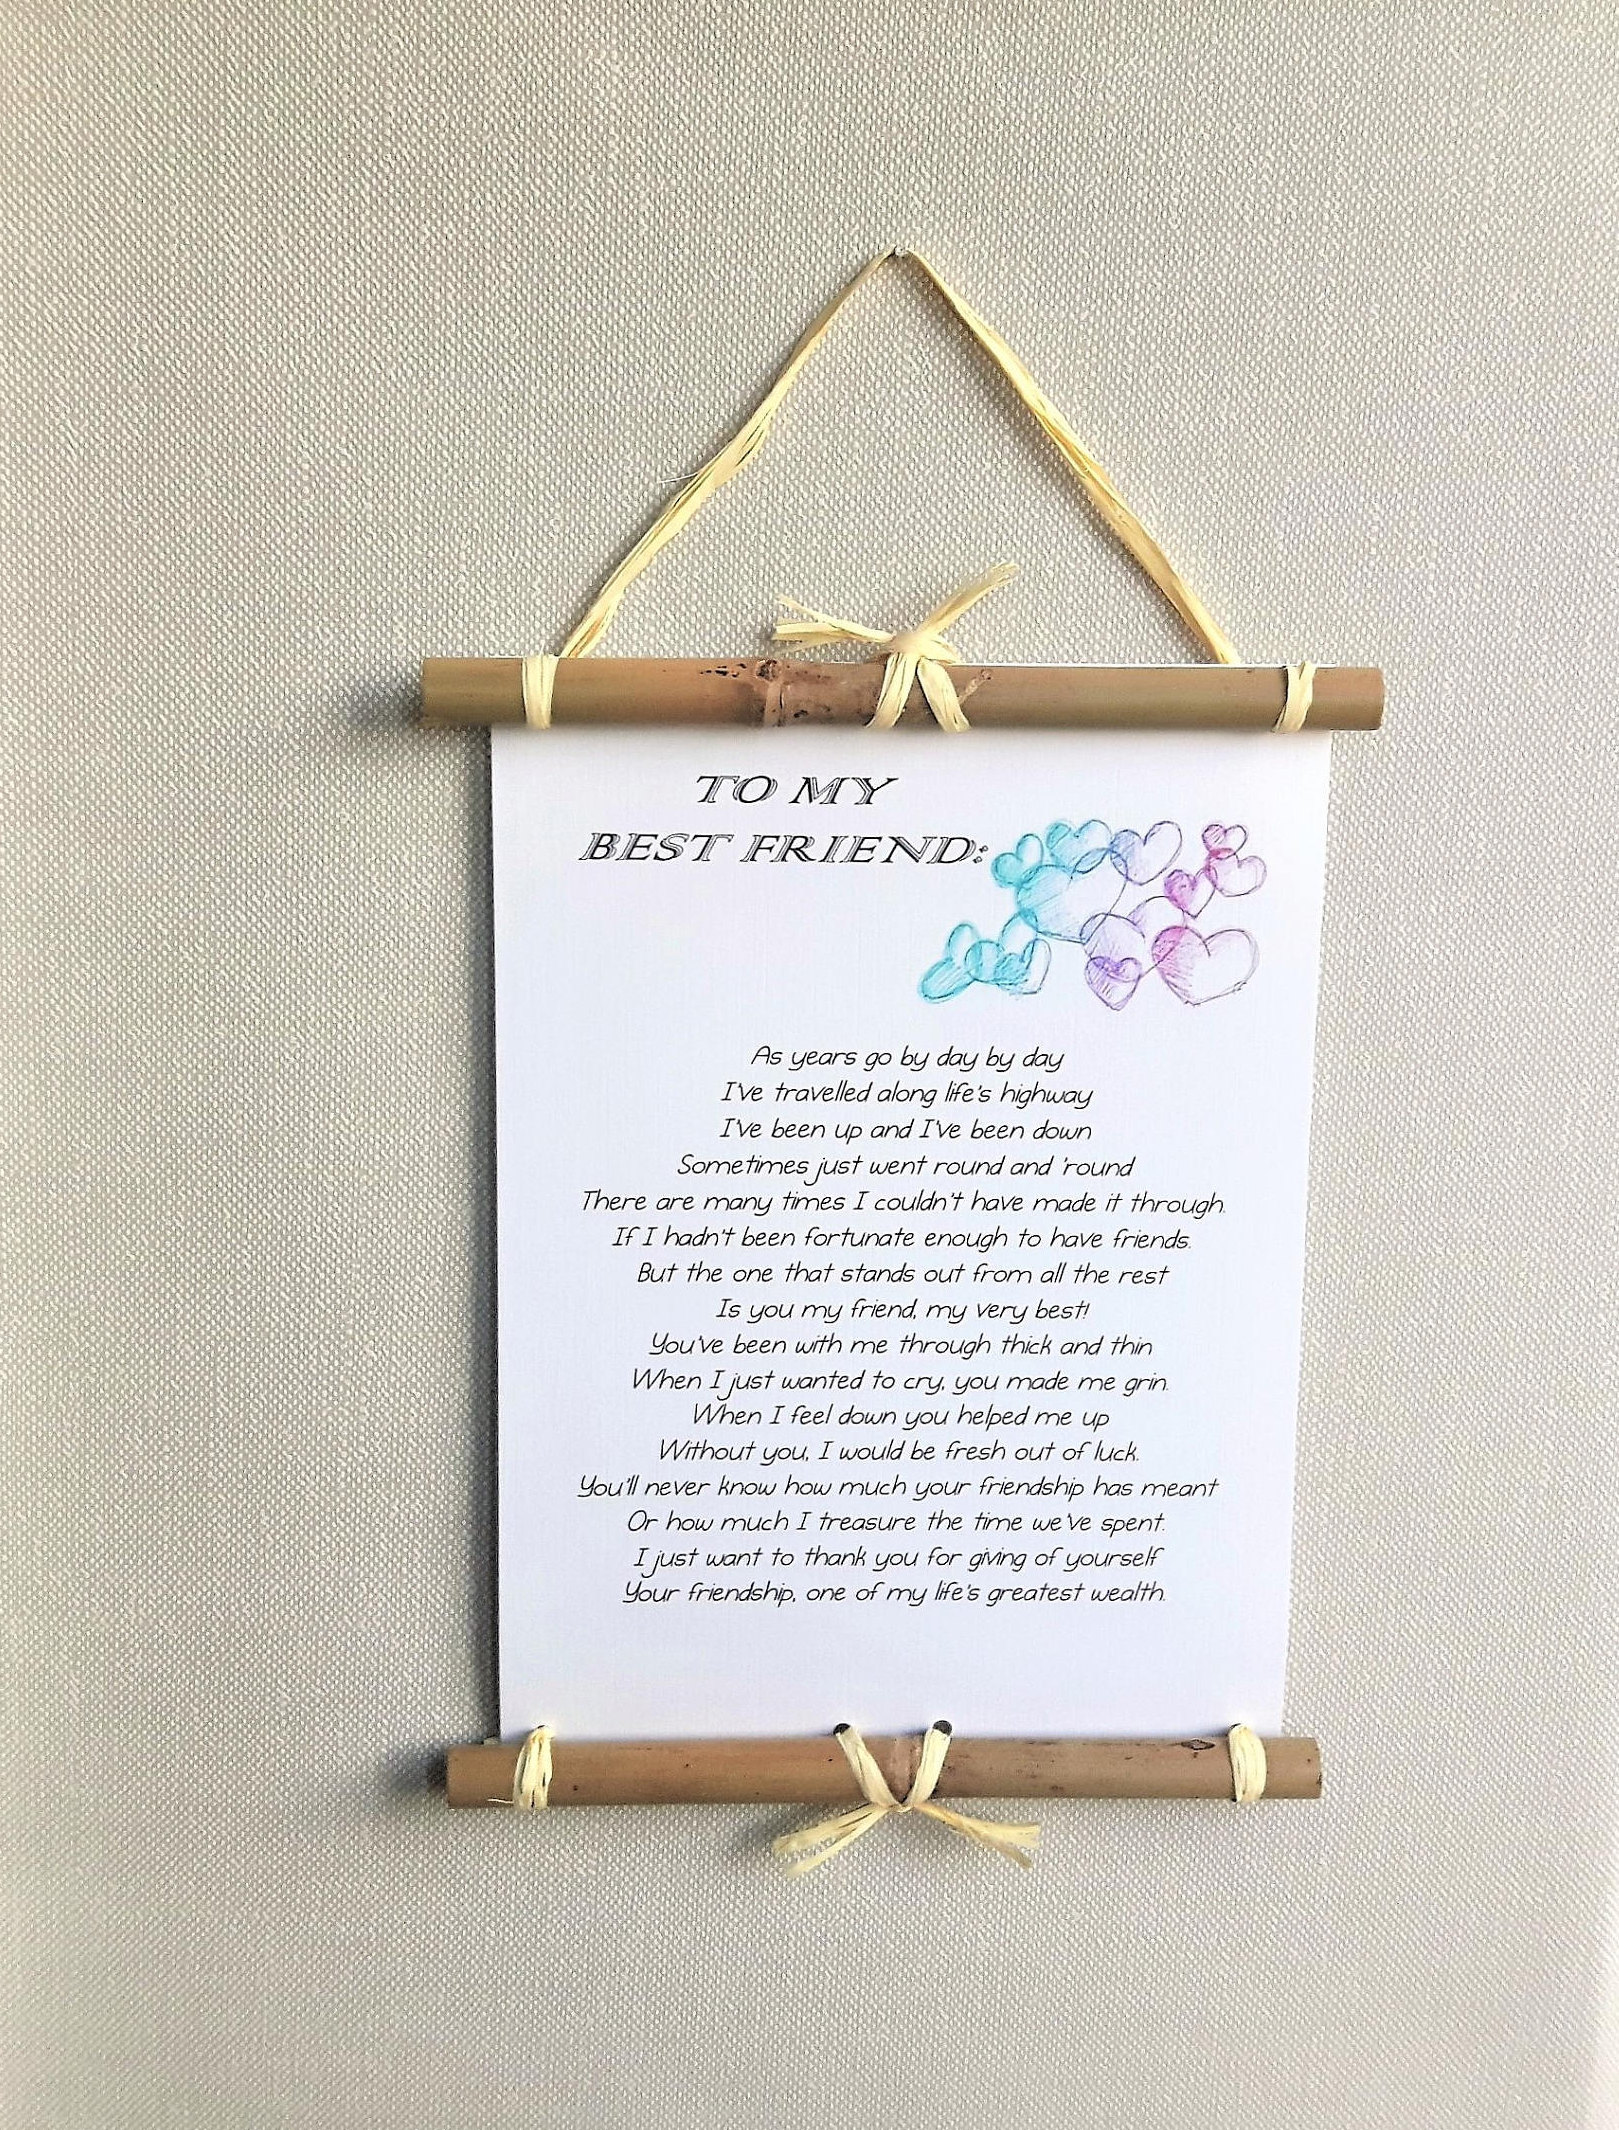 TO MY
BEST FRIEND:
As years go by day by day
I've travelled along life's highway
I've been up and I've been down
Sometimes just went round and 'round
There are many times I couldn't have made it through.
If I hadn't been fortunate enough to have friends.
But the one that stands out from all the rest
Is you my friend, my very best!
You've been with me through thick and thin
When I just wanted to cry, you made me grin.
When I feel down you helped me up
Without you, I would be fresh out of luck.
You'll never know how much your friendship has meant
Or how much I treasure the time we've spent.
I just want to thank you for giving of yourself
Your friendship, one of my life's greatest wealth.